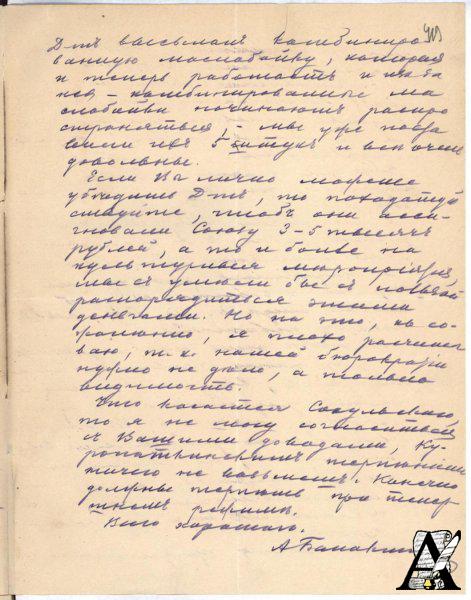 Д-тъ высылаетъ комбиниро
ванную маслобойку, которая
и теперь работаетъ и
комбинированныя ма
слобойки начинаютъ распро
страняться, - мы уже поста
вили ихъ 5 штукъ и все очень
довольны.
Если Вы лично можете
убѣдить Д-тъ, то
чтобъ они асси-
гновали Союзу 3-5 тысячъ
рублей, а то и болѣе на
культурныя мѣропріятія,
мы съ умѣли бы съ пользой
распорядиться этими
деньгами. Но на это, къ со-
жалѣнію, я плохо расчиты
ваю, т.к. нашей бюрократіи
нужно не дѣло, а только
видимость.
Что касается Сокульскаго,
то я не могу согласиться
съ Вашими доводами, Ку-
ропаткинскимъ терпѣніемъ
ничего не возьмешь. Конечно
должны терпѣть при
режимѣ.
Всего хорошаго.
А.